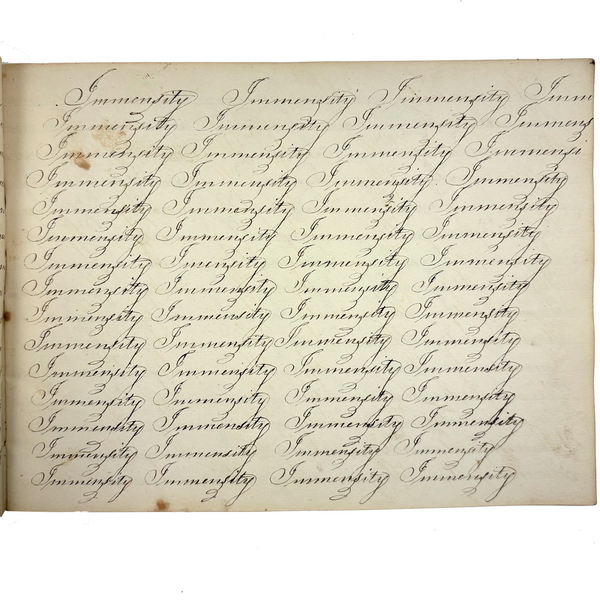 Immensity Immensity Immensity Imm
Immensity Immensity Immensity Immens
Immensity Immensity Immensity Immensi
Immensity Immensity Immensity Immensity
Immensity Immensity Immensity Immensity
Immensity Immensity Immensity Immensity
Immensity Imensity Immensity Immensity
Immensity Immensity Immensity Immensity
Immensity Immensity Immensity Immensity
Immensity Immensity Immensity Immensity
Immensity Immensity Immensity Immensity
Immensity Immensity Immensity Immensity
Immensity Immensity Immensity Immensity
Immensity Immensity Immensity Immensity
Immensity Immensity Immensity Immensity